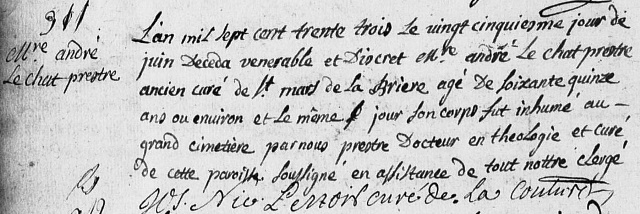 311
Mre andré
Le chat prestre
L'an mil sept cent trente trois le vingt cinquiesme jour de
juin Deceda venerable et Discret Mre andré Le chat prestre
ancien curé de St mars de la Briere agé De soixante quinze
ans ou environ et le même jour son corps fut inhumé au
grand cimetière par nous prestre Docteur en theologie et curé
de cette paroisse soussigné en assistance de tout nottre clergé
curé de La Couture